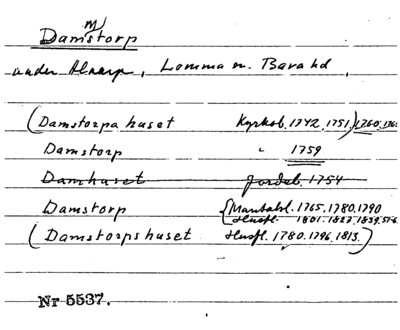 m)
Damstorp
under Alnarp, Lomma sn. Bara hd,
(Damstorpa huset Kyrkob. 1742, 1751) 1760,
Damstorp " 1759
Damhuset Jordeb. 1754
Damstorp {Mantalsl. 1765, 1780, 1790
Husfl. 1801-1827, 1839,
(Damstorps huset Husfl. 1780, 1796, 1813.)
Nr 5537.